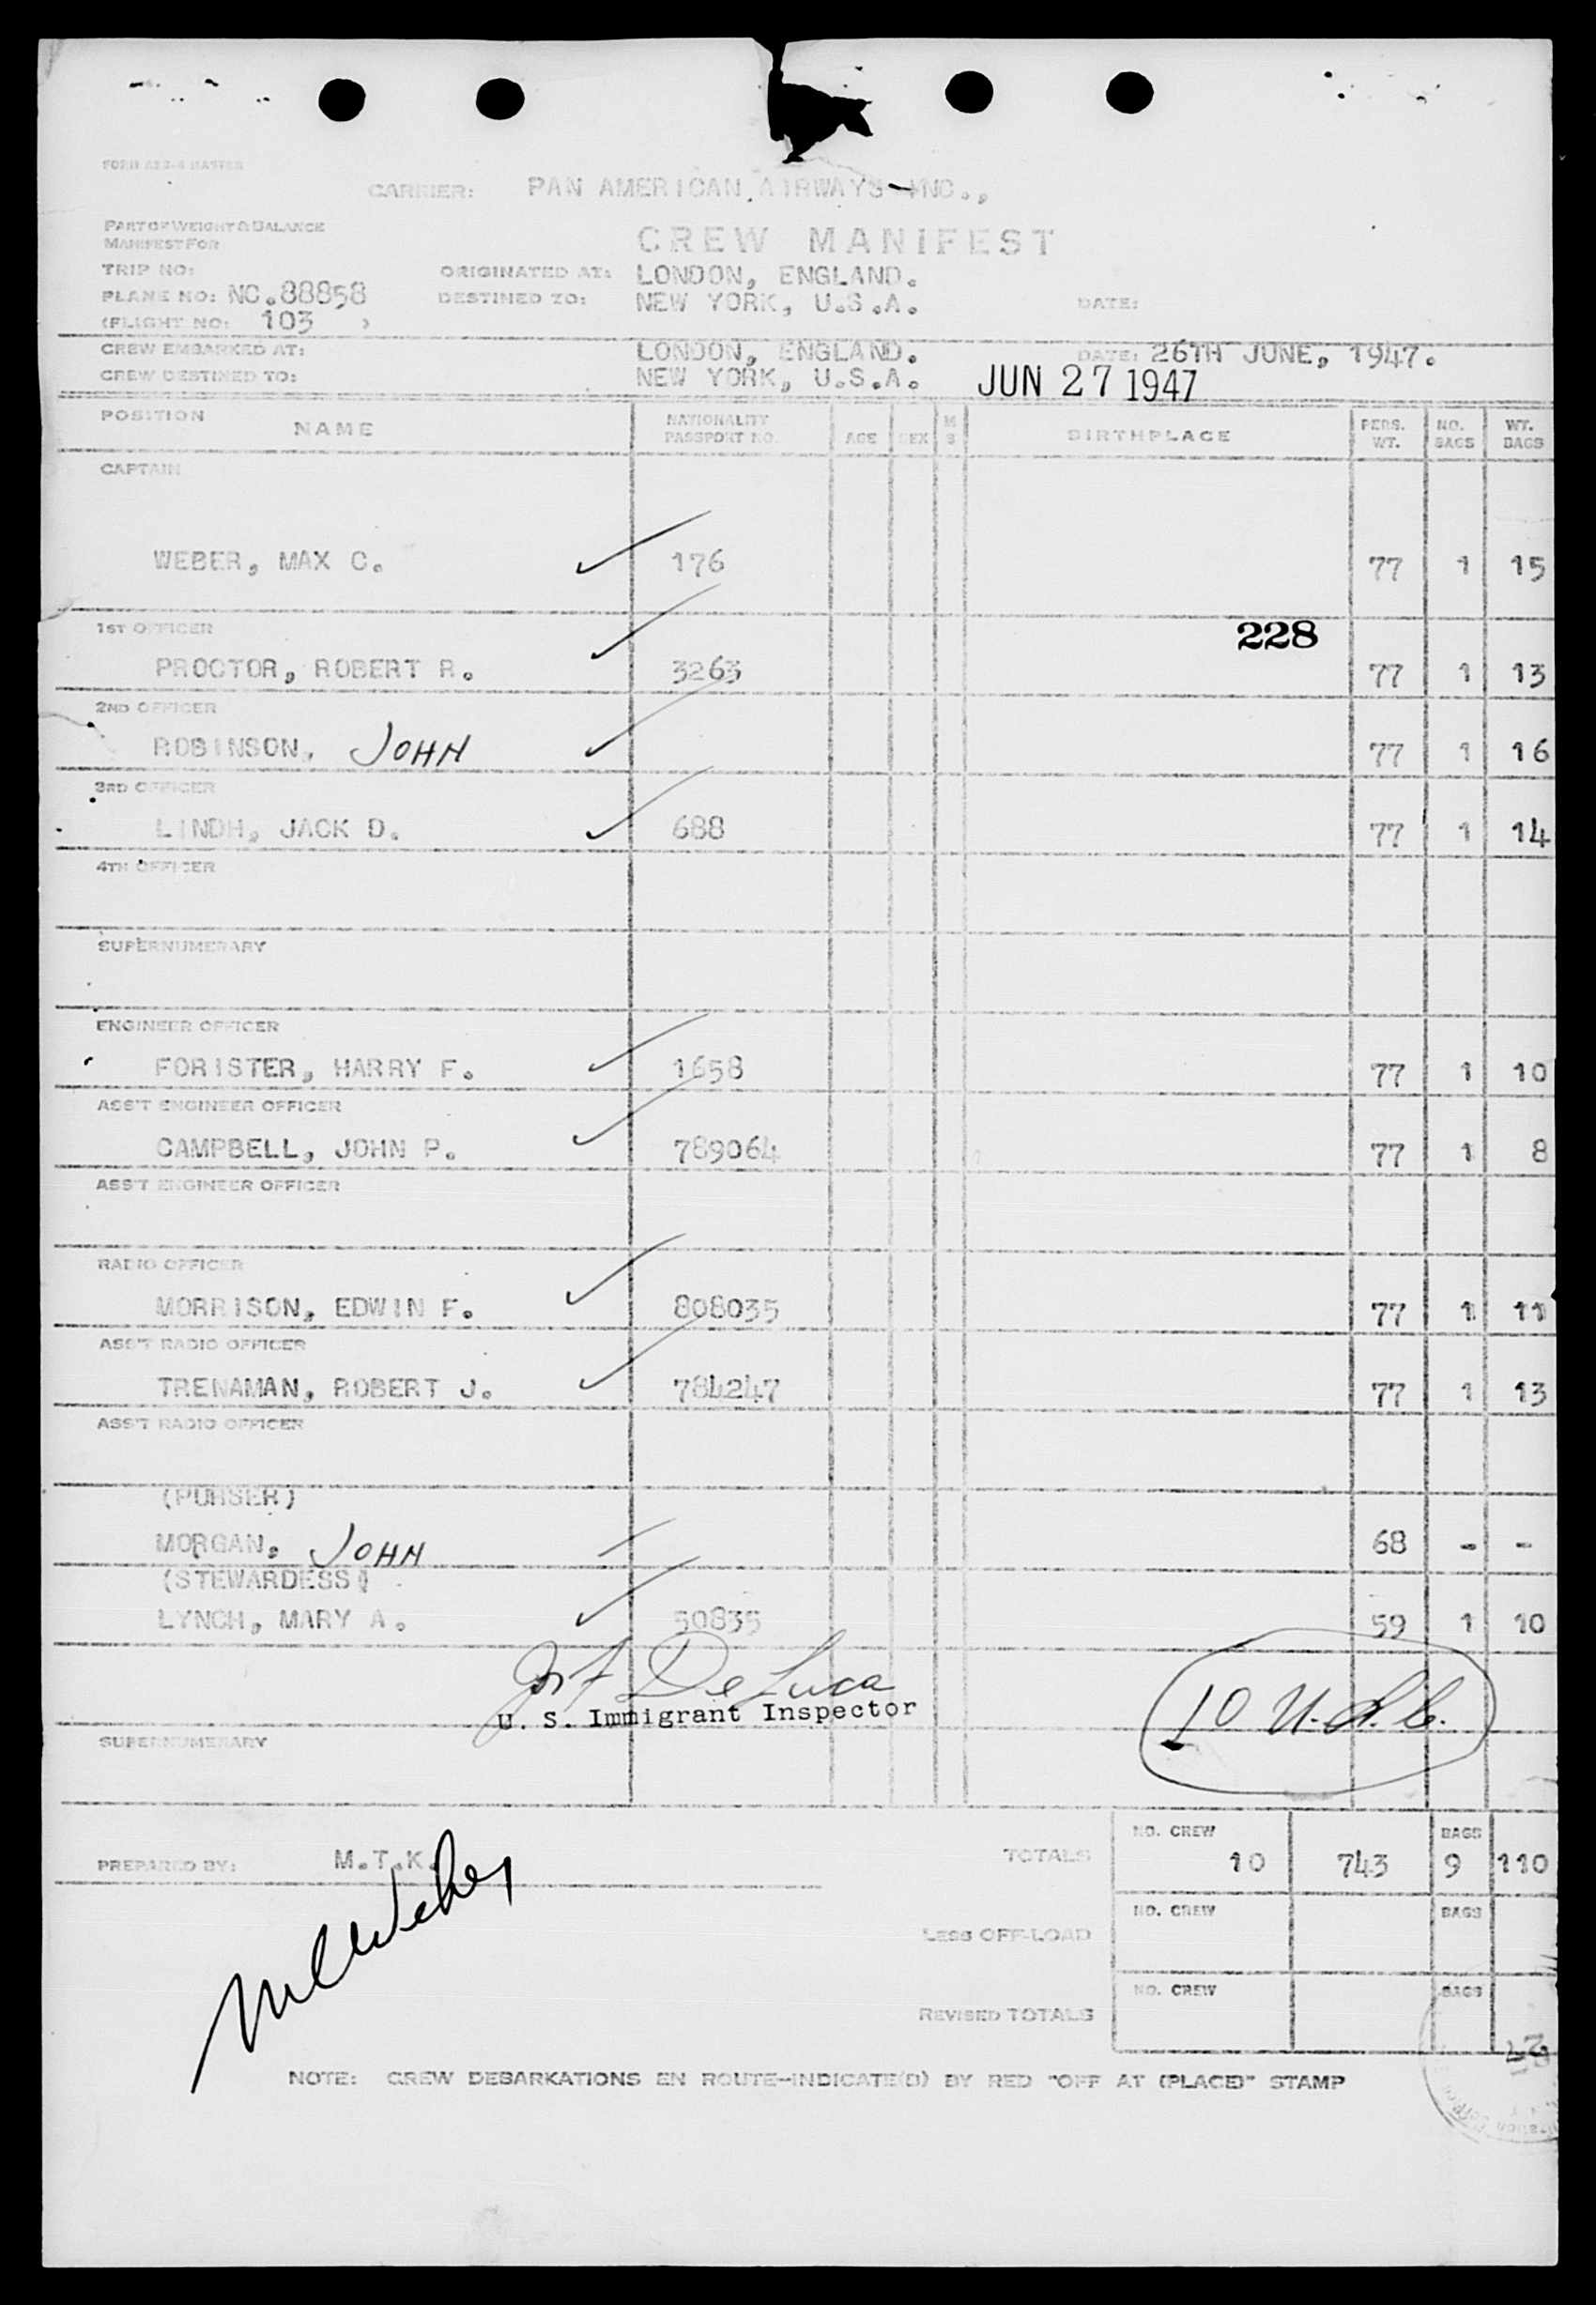 CARRIER: PAN AMERICAN AIRWAYS INC.,
PART OF WEIGHT & BALANCE
MANIFEST FOR
CREW MANIFEST
TRIP NO:
ORIGINATED AT: LONDON, ENGLAND.
PLANE NO: NC.88858
DESTINED TO: NEW YORK, U.S.A.
DATE:
(FLIGHT NO: 103 )
CREW EMBARKED AT: LONDON, ENGLAND. DATE: 26TH JUNE, 1947.
CREW DESTINED TO: NEW YORK, U.S.A. JUN 27 1947
POSITION NAME NATIONALITY PASSPORT NO. AGE SEX M S BIRTHPLACE PERS. WT. NO. BAGS WT. BAGS
CAPTAIN
WEBER, MAX C. 176 77 1 15
1ST OFFICER 228
PROCTOR, ROBERT R. 3263 77 1 13
2ND OFFICER
ROBINSON, JOHN 77 1 16
3RD OFFICER
LINDH, JACK D. 688 77 1 14
4TH OFFICER
SUPERNUMERARY
ENGINEER OFFICER
FORISTER, HARRY F. 1658 77 1 10
ASS'T ENGINEER OFFICER
CAMPBELL, JOHN P. 789064 77 1 8
ASS'T ENGINEER OFFICER
RADIO OFFICER
MORRISON, EDWIN F. 808035 77 1 11
ASS'T RADIO OFFICER
TRENAMAN, ROBERT J. 784247 77 1 13
ASS'T RADIO OFFICER
(PURSER)
MORGAN, JOHN 68 - -
(STEWARDESS)
LYNCH, MARY A. 50835 59 1 10
De Luca
U. S. Immigrant Inspector
10 U.S.C.
SUPERNUMERARY
PREPARED BY: M.T.K.
TOTALS NO. CREW 10 743 BAGS 9 110
LESS OFF-LOAD NO. CREW BAGS
REVISED TOTALS NO. CREW BAGS
MCWeber
NOTE: CREW DEBARKATIONS EN ROUTE-INDICATE(D) BY RED "OFF AT (PLACE)" STAMP